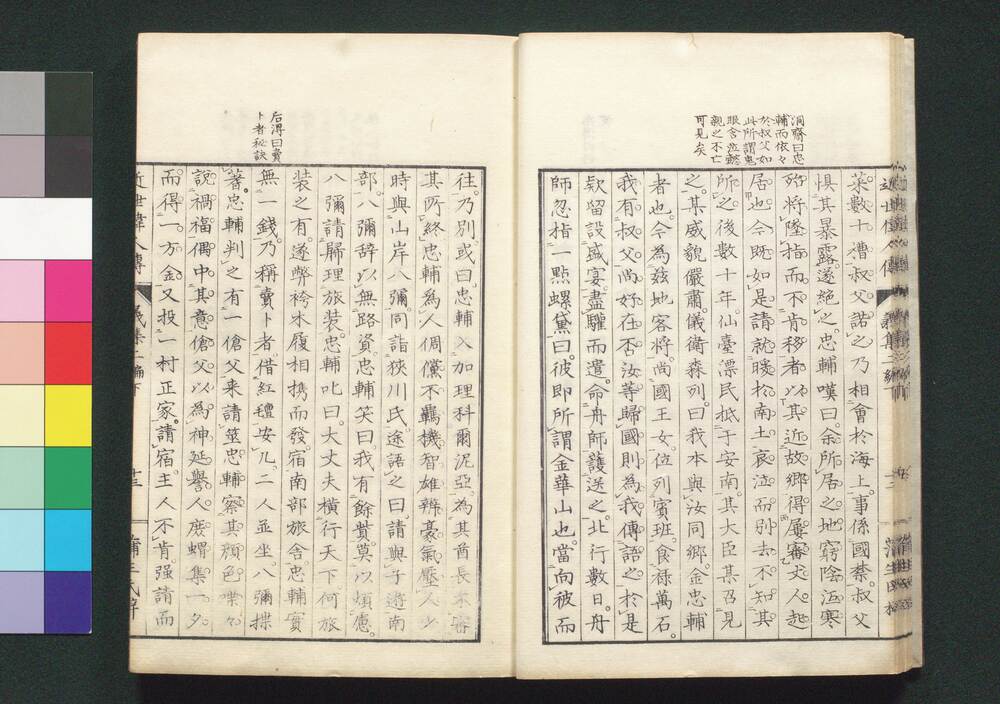 洞齋曰忠
輔而依々
於叔父如
此所謂鬼
眼含泣懿
親之不亡
可見矣
菜數十漕叔父諾之乃相會於海上事係國禁叔父
惧其暴露遂絕之忠輔嘆曰余所居之地窮陰沍寒
殆將墜指而不肯移者以其近故鄉得屢審父人起
居也今既如是請就暖於南土哀泣而別去不知其
所之後數十年仙臺漂民抵于安南其大臣某召見
之某威貌儼肅儀衛森列曰我本與汝同鄉金忠輔
者也今為玆地客將尚國王女位列賓班食祿萬石
我有叔父尚好在否汝等歸國則為我傳語之於是
欵留設盛宴盡驩而遣命舟師護送之北行數日舟
師忽指一點螺黛曰彼即所謂金華山也當向彼而
后潯曰賣
卜者秘訣
往乃別或曰忠輔入加理科爾泥亞為其酋長未審
其所終忠輔為人倜儻不羈機智雄辨豪氣壓人少
時與山岸八彌同詣狹川氏途語之曰請與子遊南
部八彌辭以無路資忠輔笑曰我有餘貲莫以煩慮
八彌請歸理旅裝忠輔叱曰大丈夫橫行天下何旅
裝之有遂弊袴木履相携而發宿南部旅舍忠輔實
無一錢乃稱賣卜者借紅氊安几二人並坐八彌揲
蓍忠輔判之有一傖父来請筮忠輔察其顏色喋々
說禍福偶中其意傖父以為神延譽人麕蝟集一夕
而得一方金又投一村正家請宿主人不肯强請而
近世偉人傳 義集二編下 十三 蒲生氏梓